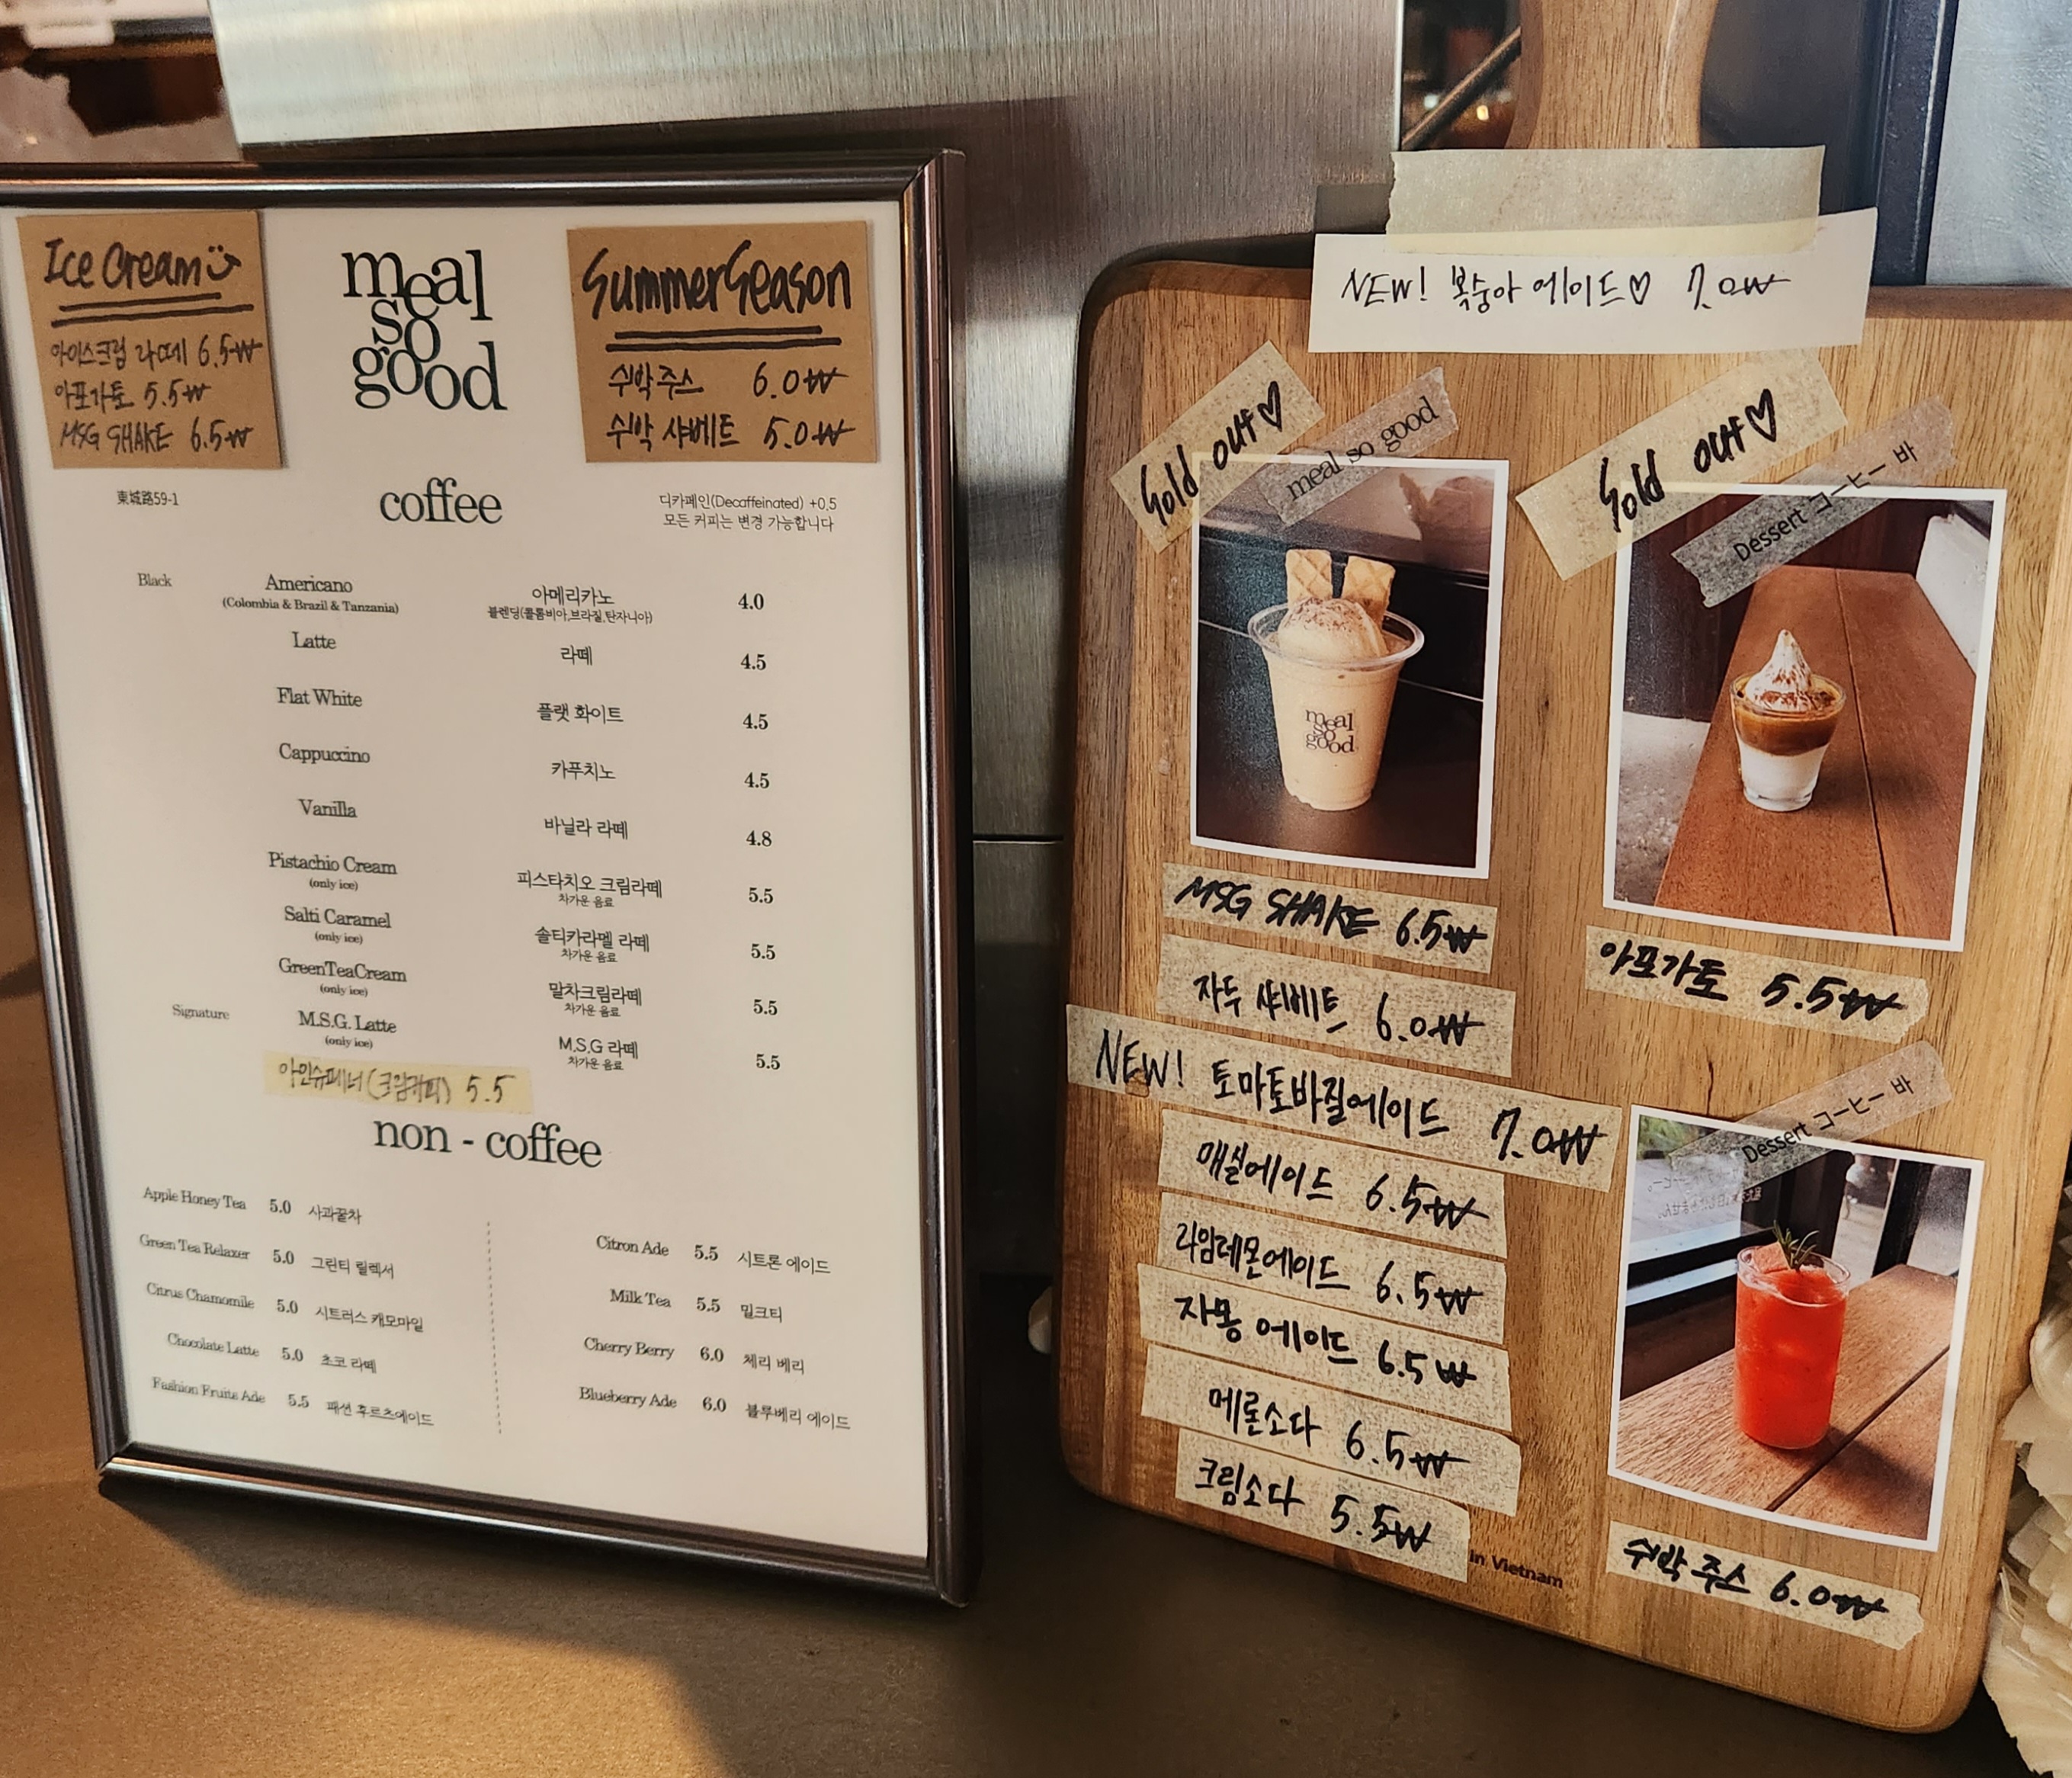 Ice Cream
아이스크림 라떼 6.5₩
아포가토 5.5₩
MSG SHAKE 6.5₩
meal
so
good
Summer Season
수박주스 6.0₩
수박 샤베트 5.0₩
東城路59-1
coffee
디카페인(Decaffeinated) +0.5
모든 커피는 변경 가능합니다
Black
Americano 아메리카노 4.0
(Colombia & Brazil & Tanzania) 블렌딩(콜롬비아,브라질,탄자니아)
Latte 라떼 4.5
Flat White 플랫 화이트 4.5
Cappuccino 카푸치노 4.5
Vanilla 바닐라 라떼 4.8
Pistachio Cream 피스타치오 크림라떼 5.5
(only ice) 차가운 음료
Salti Caramel 솔티카라멜 라떼 5.5
(only ice) 차가운 음료
GreenTeaCream 말차크림라떼 5.5
(only ice) 차가운 음료
Signature
M.S.G. Latte M.S.G 라떼 5.5
(only ice) 차가운 음료
아인슈페너(크림커피) 5.5
non - coffee
Apple Honey Tea 5.0 사과꿀차
Green Tea Relaxer 5.0 그린티 릴렉서
Citrus Chamomile 5.0 시트러스 캐모마일
Chocolate Latte 5.0 초코 라떼
Fashion Fruits Ade 5.5 패션 후르츠에이드
Citron Ade 5.5 시트론 에이드
Milk Tea 5.5 밀크티
Cherry Berry 6.0 체리 베리
Blueberry Ade 6.0 블루베리 에이드
NEW! 복숭아 에이드♡ 7.0₩
Sold out♡
meal so good
meal
so
good
MSG SHAKE 6.5₩
자두 샤베트 6.0₩
NEW! 토마토바질에이드 7.0₩
매실에이드 6.5₩
라임레몬에이드 6.5₩
자몽 에이드 6.5₩
메론소다 6.5₩
크림소다 5.5₩
in Vietnam
Sold out♡
Dessert コーヒー 바
아포가토 5.5₩
Dessert コーヒー 바
수박주스 6.0₩